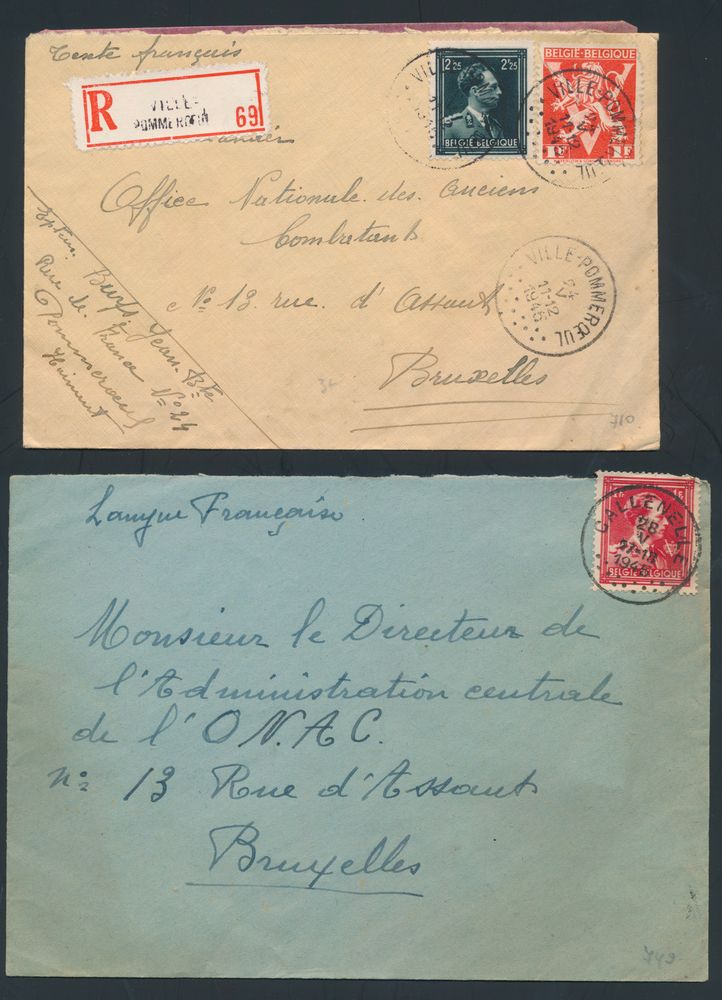 Texte français
R
VILLE-
POMMEROEUL
69
2F25 2F25
BELGIE-BELGIQUE
BELGIE-BELGIQUE
1F F
VILLE-POMMERŒUL
11-12
1946
Office Nationale des Anciens
Combattants
N° 13 rue d'Assaut
Bruxelles
VILLE-POMMERŒUL
24
V
11-12
1946
Jean-Bte
Rue de France N° 24
Pommeroeul
Hainaut
710
Langue Française
BELGIE-BELGIQUE
CALLENELLE
28
17-18
Monsieur le Directeur de
l'Administration centrale
de l'O.N.A.C.
N° 13 Rue d'Assaut
Bruxelles
749